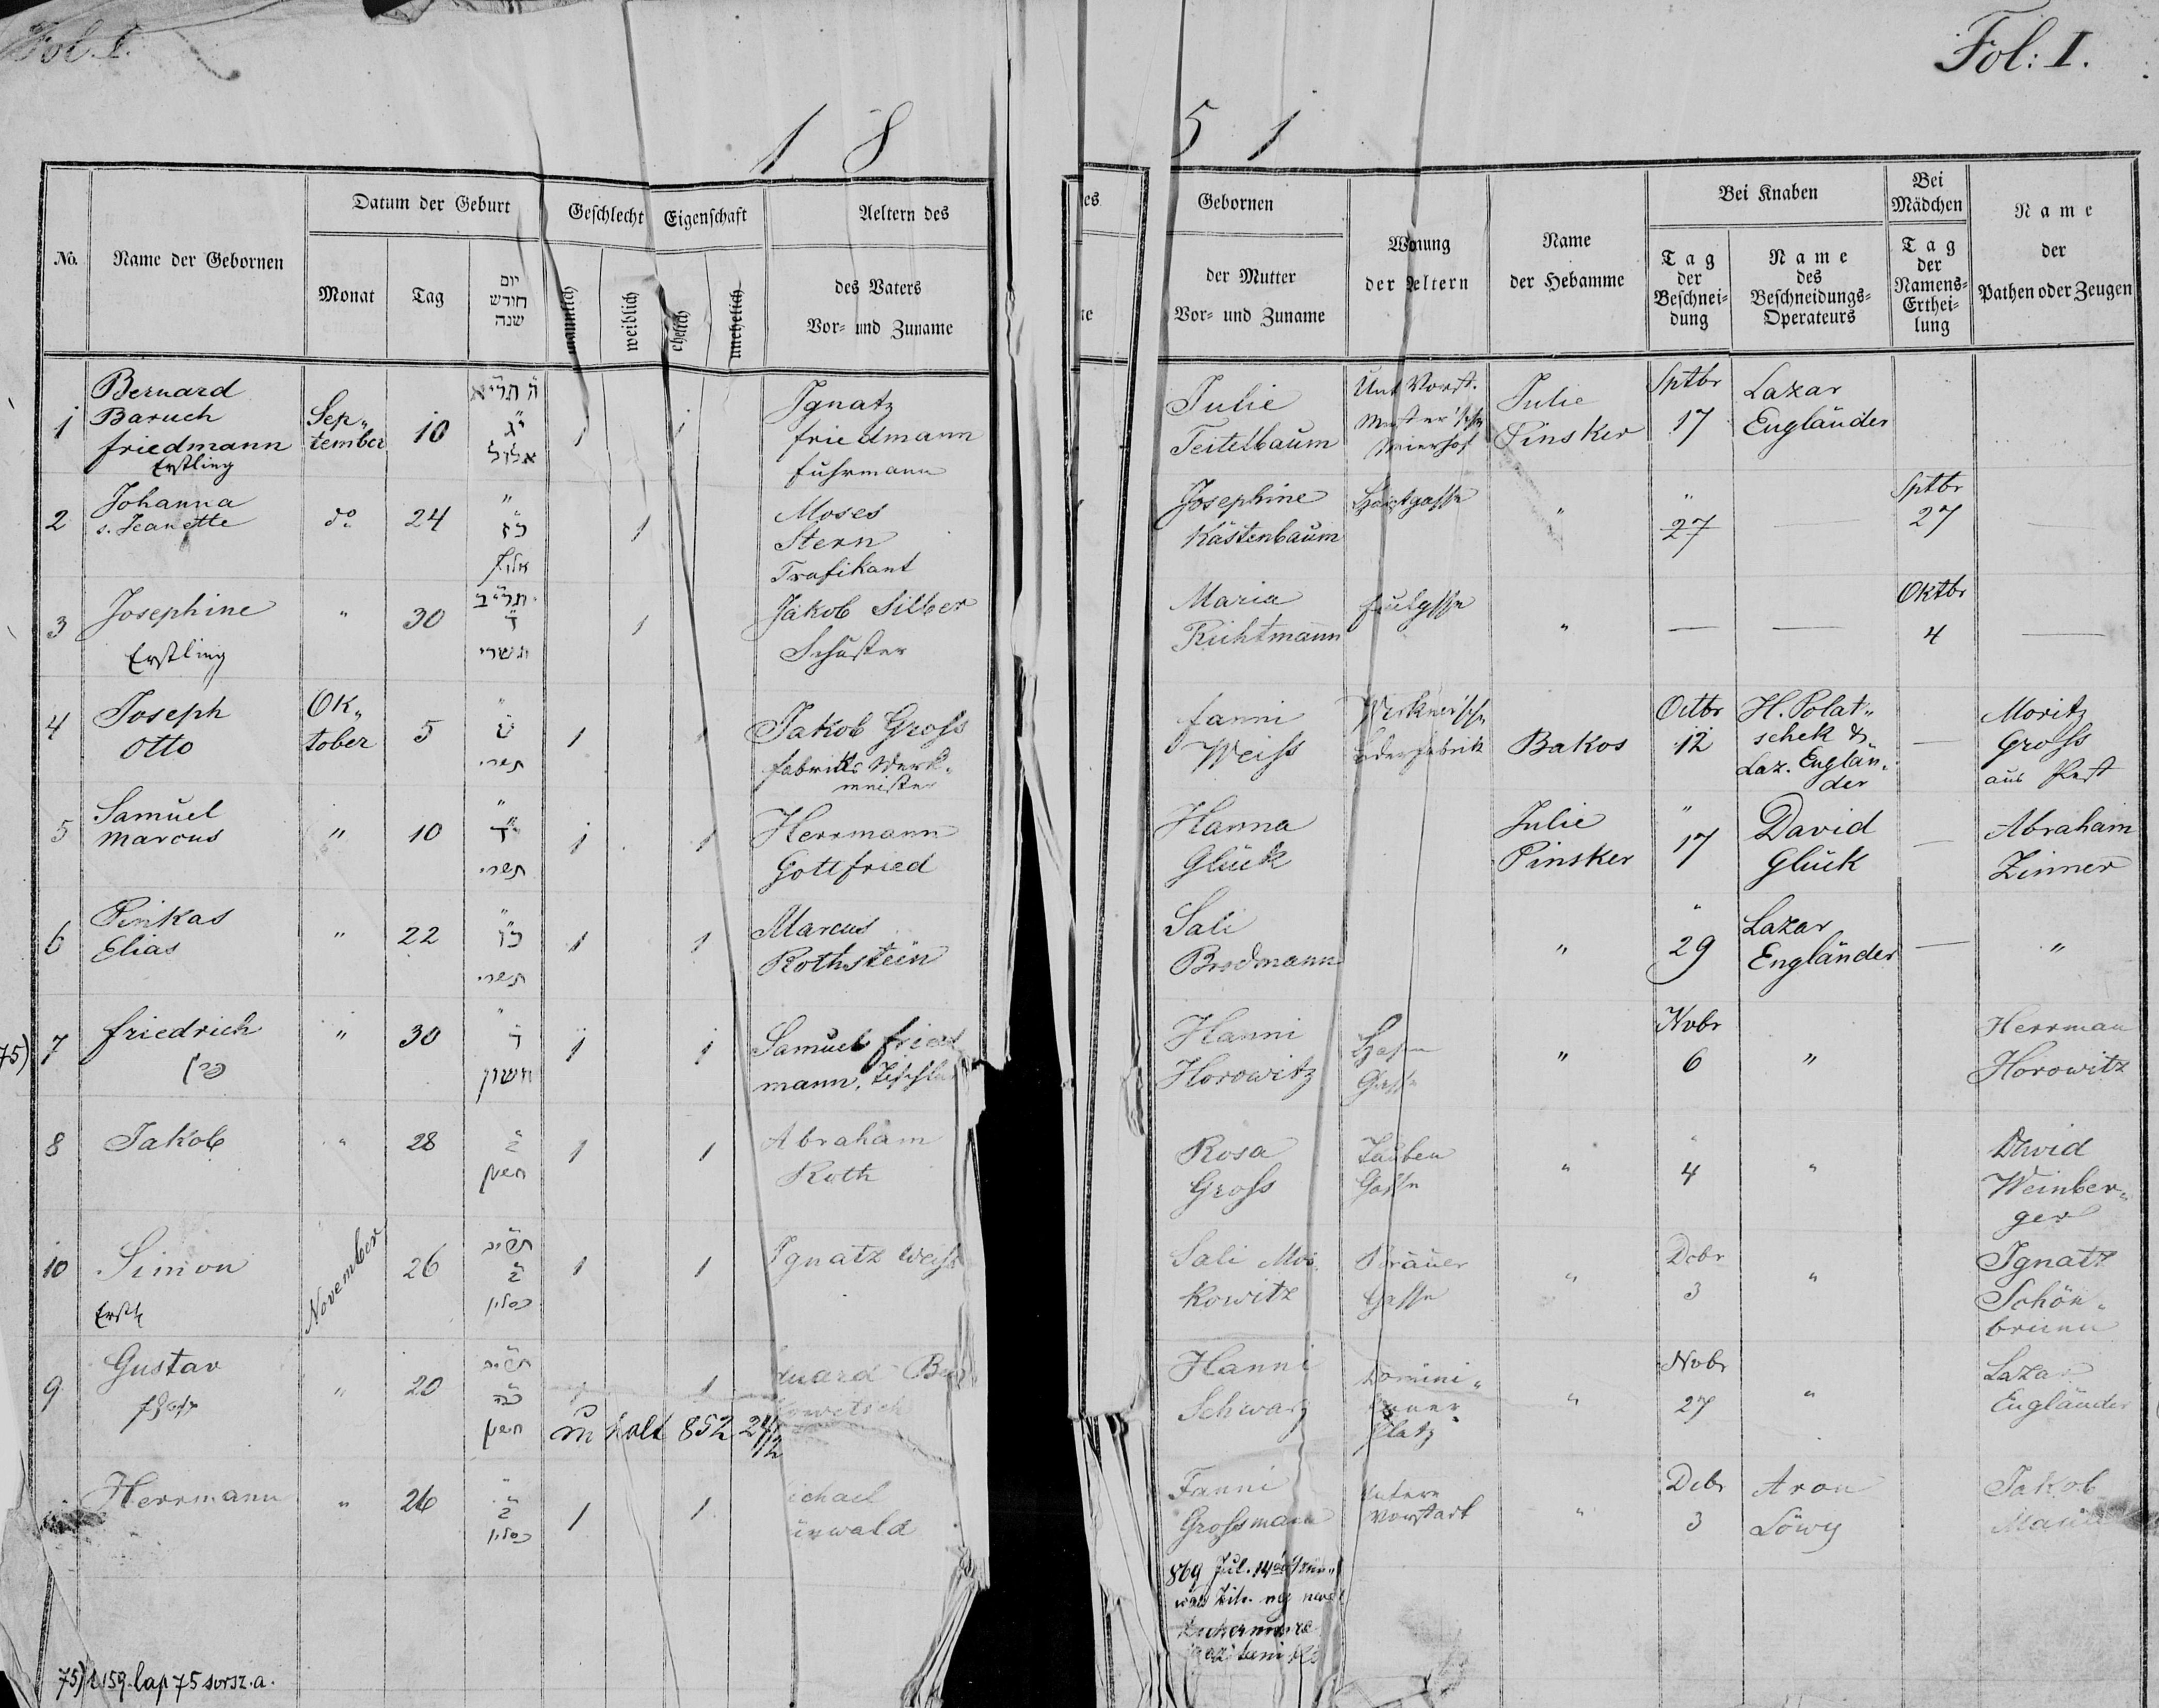 Fol. I.
Fol: I.
18 51
No.
Name der Gebornen
Datum der Geburt
Monat
Tag
יום
חודש
שנה
Geschlecht
männlich
weiblich
Eigenschaft
ehelich
unehelich
Aeltern des
des Vaters
Vor- und Zuname
Gebornen
der Mutter
Vor- und Zuname
Wonung
der Aeltern
Name
der Hebamme
Bei Knaben
Tag
der
Beschnei-
dung
Name
des
Beschneidungs-
Operateurs
Bei
Mädchen
Tag
der
Namens-
Erthei-
lung
Name
der
Pathen oder Zeugen
1
Bernard
Baruch
Friedmann
Erstling
Sep„
tember
10
ה תרי״א
י״ג
אלול
1
1
Ignatz
Friedmann
Fuhrmann
Julie
Teitelbaum
Unt Vorst.
Meierhof
Julie
Pinsker
Sptbr
17
Lazar
Engländer
2
Johanna
s. Jeanette
do
24
"
כ״ז
אלול
1
Moses
Stern
Trafikant
Josephine
Kästenbaum
"
"
27
Sptbr
27
3
Josephine
Erstling
"
30
תרי״ב
ד
תשרי
1
Jakob Silber
Schuster
Maria
Richtmann
"
Oktbr
4
4
Joseph
Otto
Ok„
tober
5
"
ט
תשרי
1
1
Jakob Gross
Fabriks Werk„
meister
Fanni
Weiss
Lederfabrik
Bakos
Octbr
12
H. Polat„
schek &
Laz. Englän„
der
Moritz
Gross
aus Pest
5
Samuel
Marcus
"
10
"
י״ד
תשרי
1
1
Herrmann
Gottfried
Hanna
Glück
Julie
Pinsker
"
17
David
Glück
Abraham
Zinner
6
Pinkas
Elias
"
22
"
כ״ו
תשרי
1
1
Marcus
Rothstein
Sali
Brodmann
"
"
29
Lazar
Engländer
"
75)
7
Friedrich
"
30
"
ד
חשון
1
1
Samuel Fried
mann, Tischler
Hanni
Horowitz
Hafen
Gasse
"
Nvbr
6
"
Herrman
Horowitz
8
Jakob
"
28
ב
חשון
1
1
Abraham
Roth
Rosa
Gross
Tauben
Gasse
"
"
4
"
David
Weinber„
ger
10
Simon
Erstl
November
26
תרי״ב
ב
כסלו
1
1
Ignatz Weiss
Sali Mos
kowitz
Bräuer
Gasse
"
Dcbr
3
"
Ignatz
Schön„
brunn
9
Gustav
"
20
תרי״ב
כ״ה
חשון
1
1
Hanni
Schwarz
Domini„
kaner
Platz
"
Nvbr
27
"
Lazar
Engländer
halt 852 24/12
Herrmann
"
26
"
ב
כסלו
1
1
ichael
ünwald
Fanni
Grossmann
Untere
Vorstadt
"
Dcbr
3
Aron
Löwy
Jakob
869 Jul. 14
75) 1159. lap 75 sorsz. a.